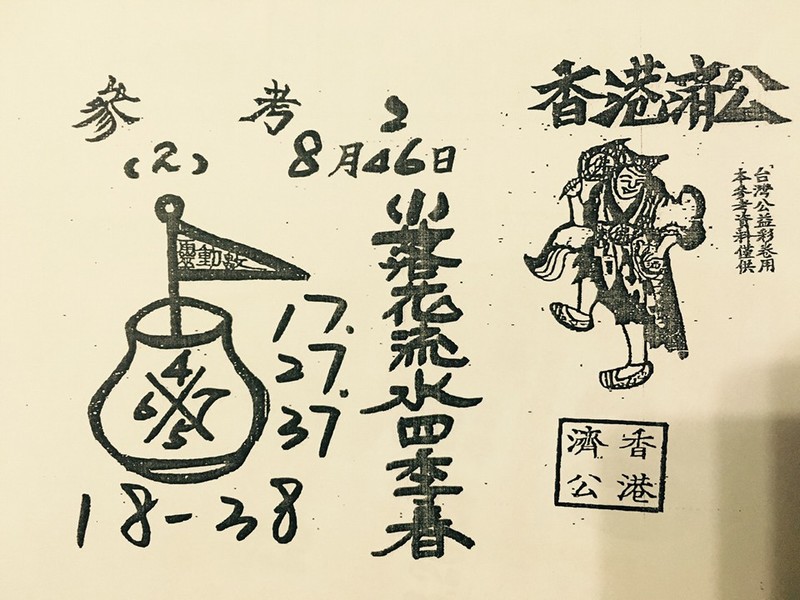 香港濟公
本參考資料僅供
台灣公益彩卷用
香港
濟公
參考
2
(2)
8月46日
落花流水四季春
靈動數
4
6 7
5
17.
27.
37
18-38